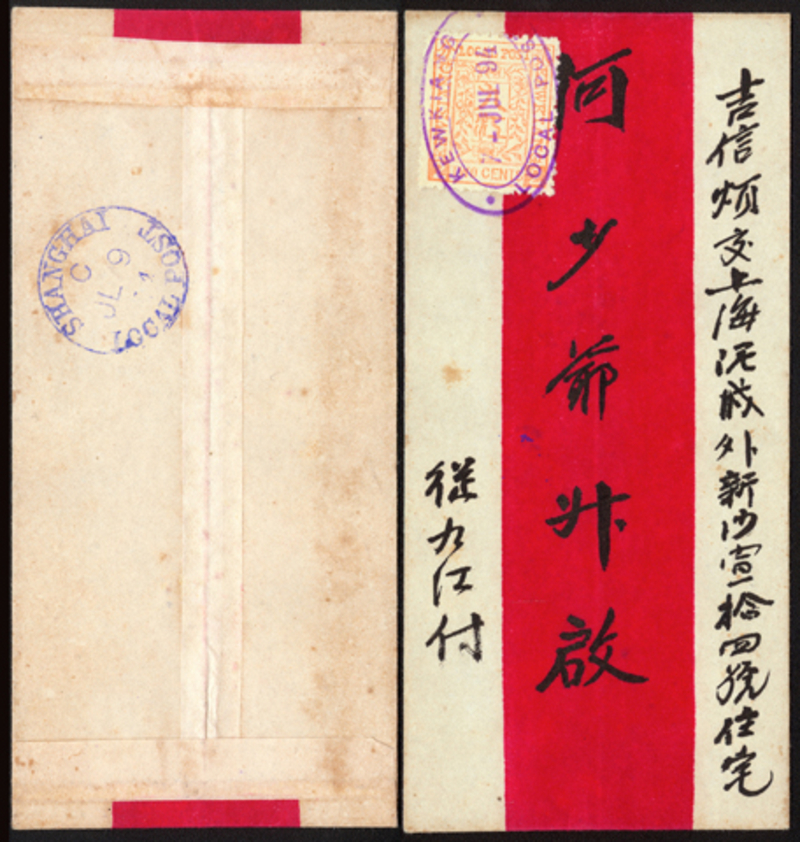 SHANGHAI LOCAL POST
C
JL 9
KEWKIANG LOCAL POST
7-JUL 94
吉信煩交上海泥城外新沙壹拾四號住宅
何少爺升啟
從九江付